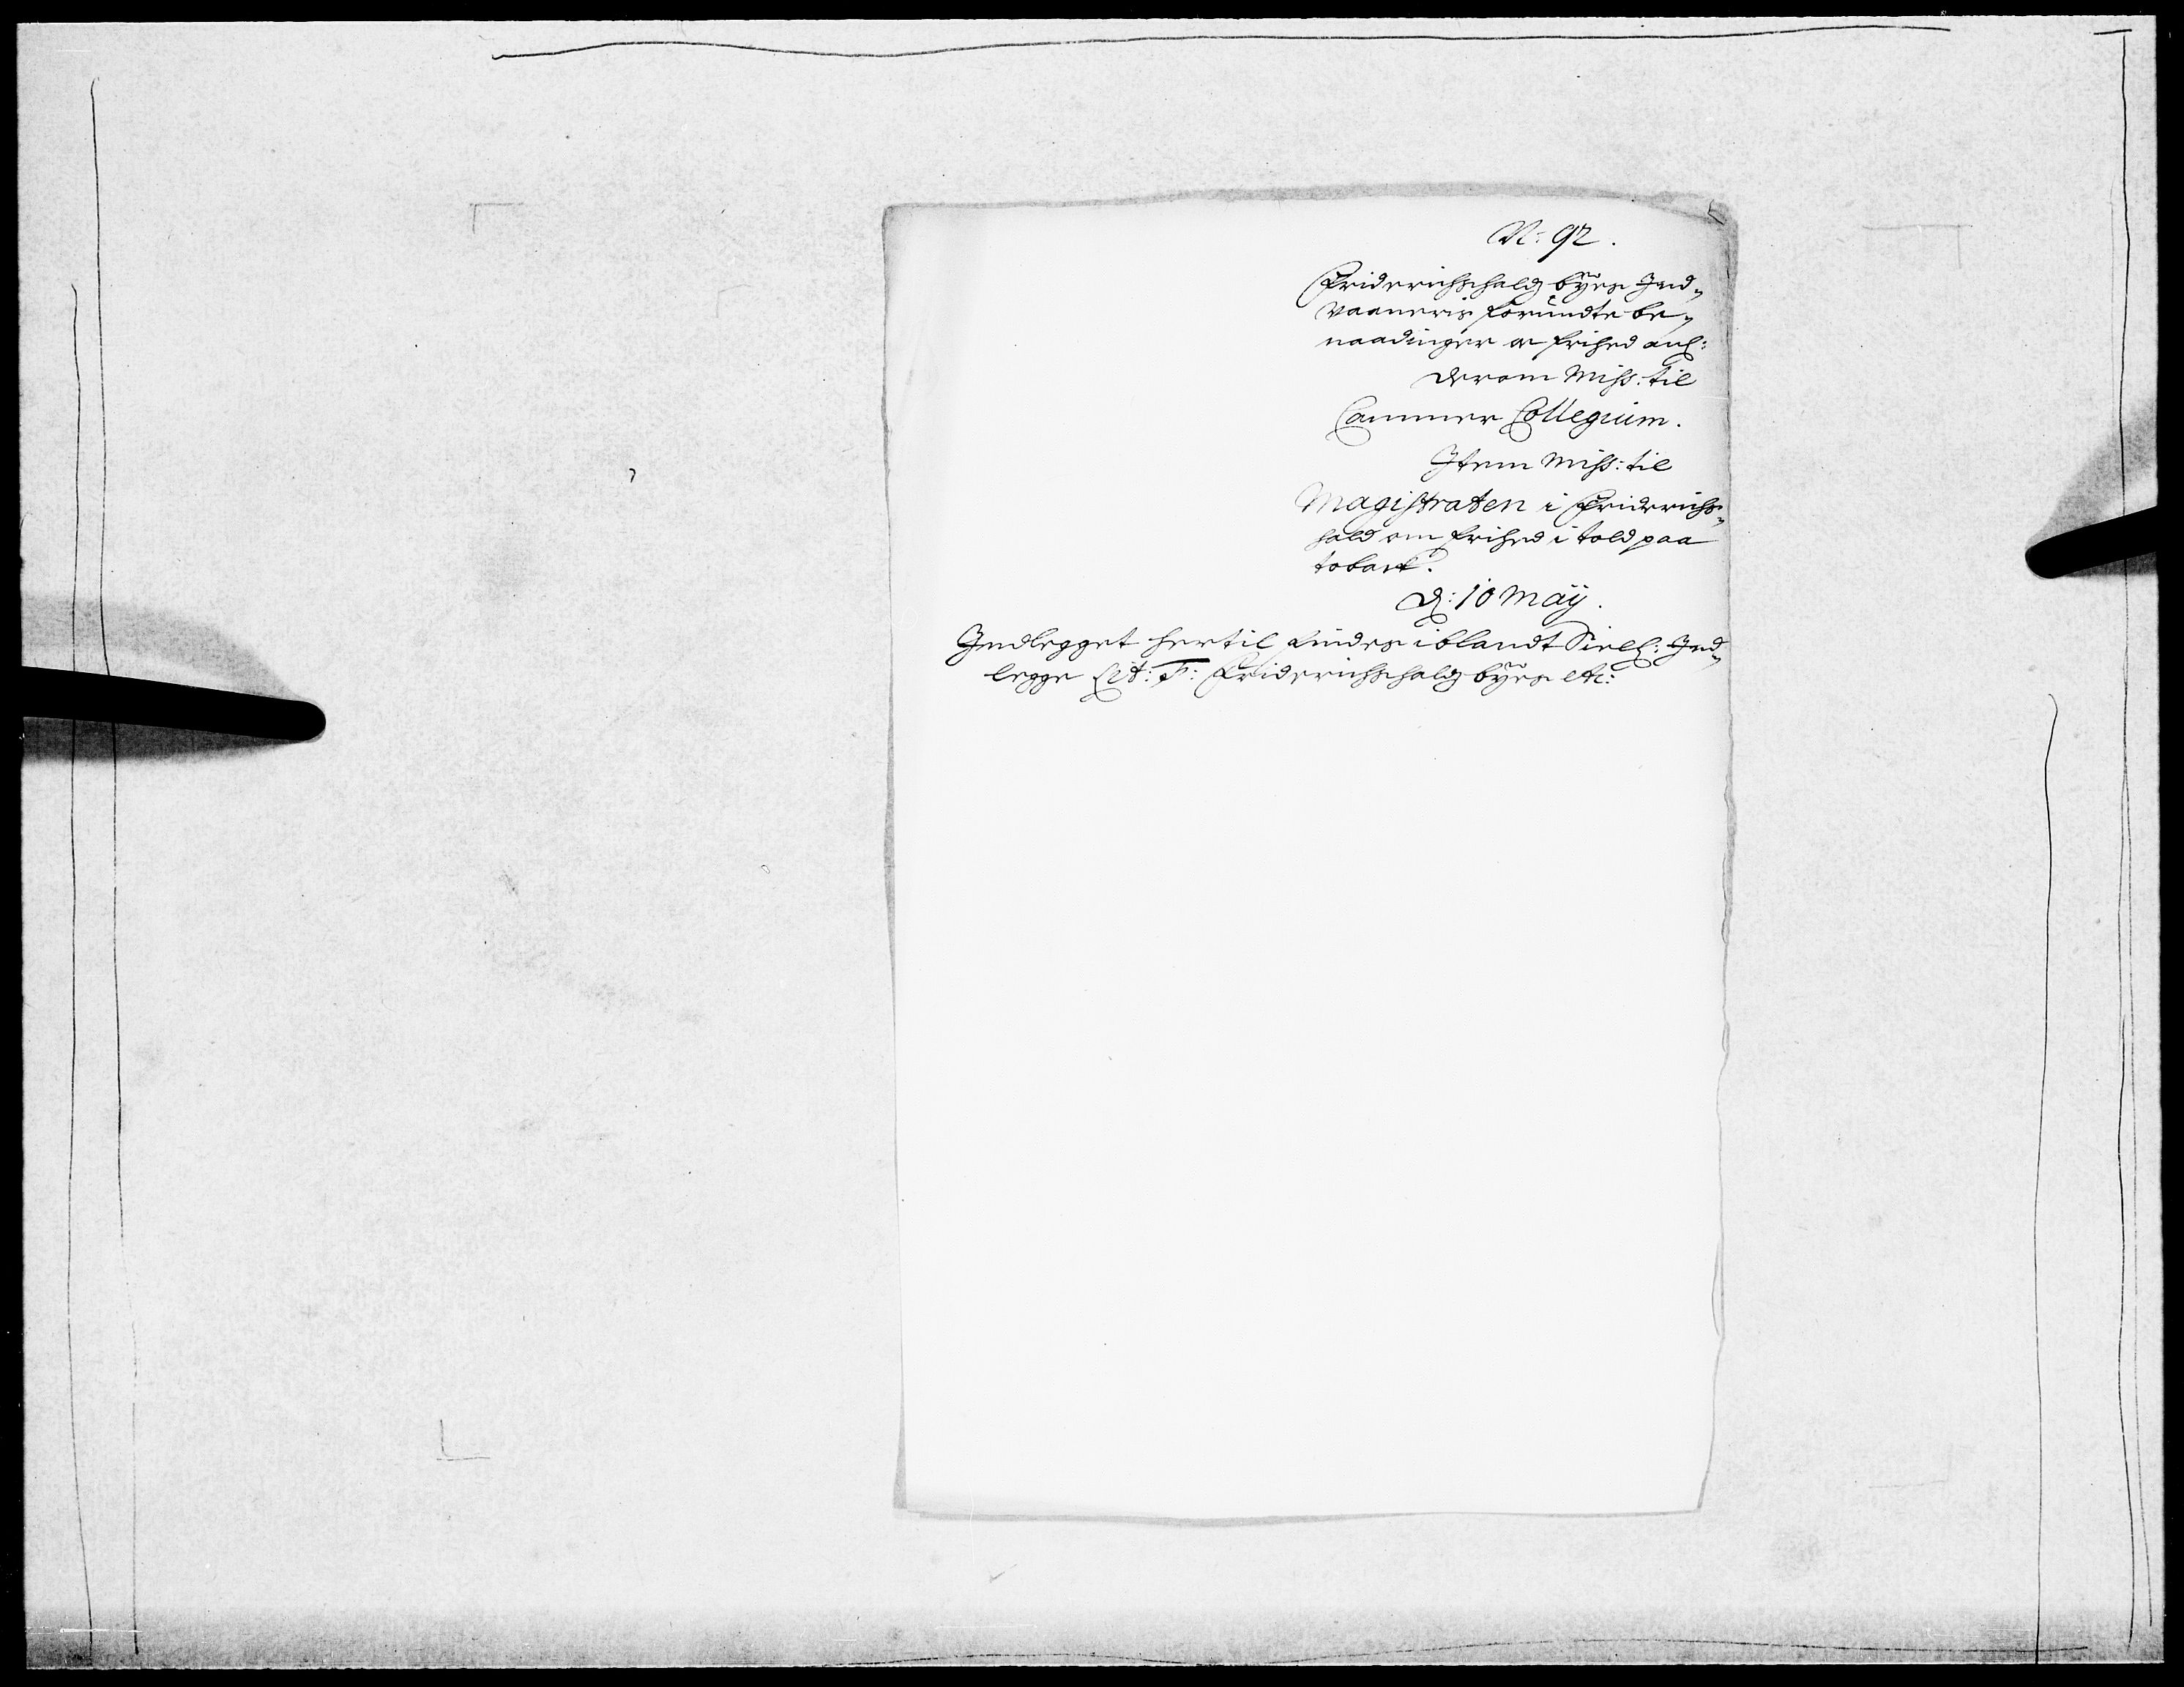 N: 92.
Friderichshalds byes Ind¬
vaaneris forundte be¬
naadinger og frihed anl:
derom Miss: til
Cammer Collegium.
Item Miss: til
Magistraten i Friderichs¬
hald om frihed i told paa
tobak.
D: 10 Maÿ.
Indlegget hertil findes iblandt Siell: Ind¬
legge Lit: F: Friderichshalds byes etc: